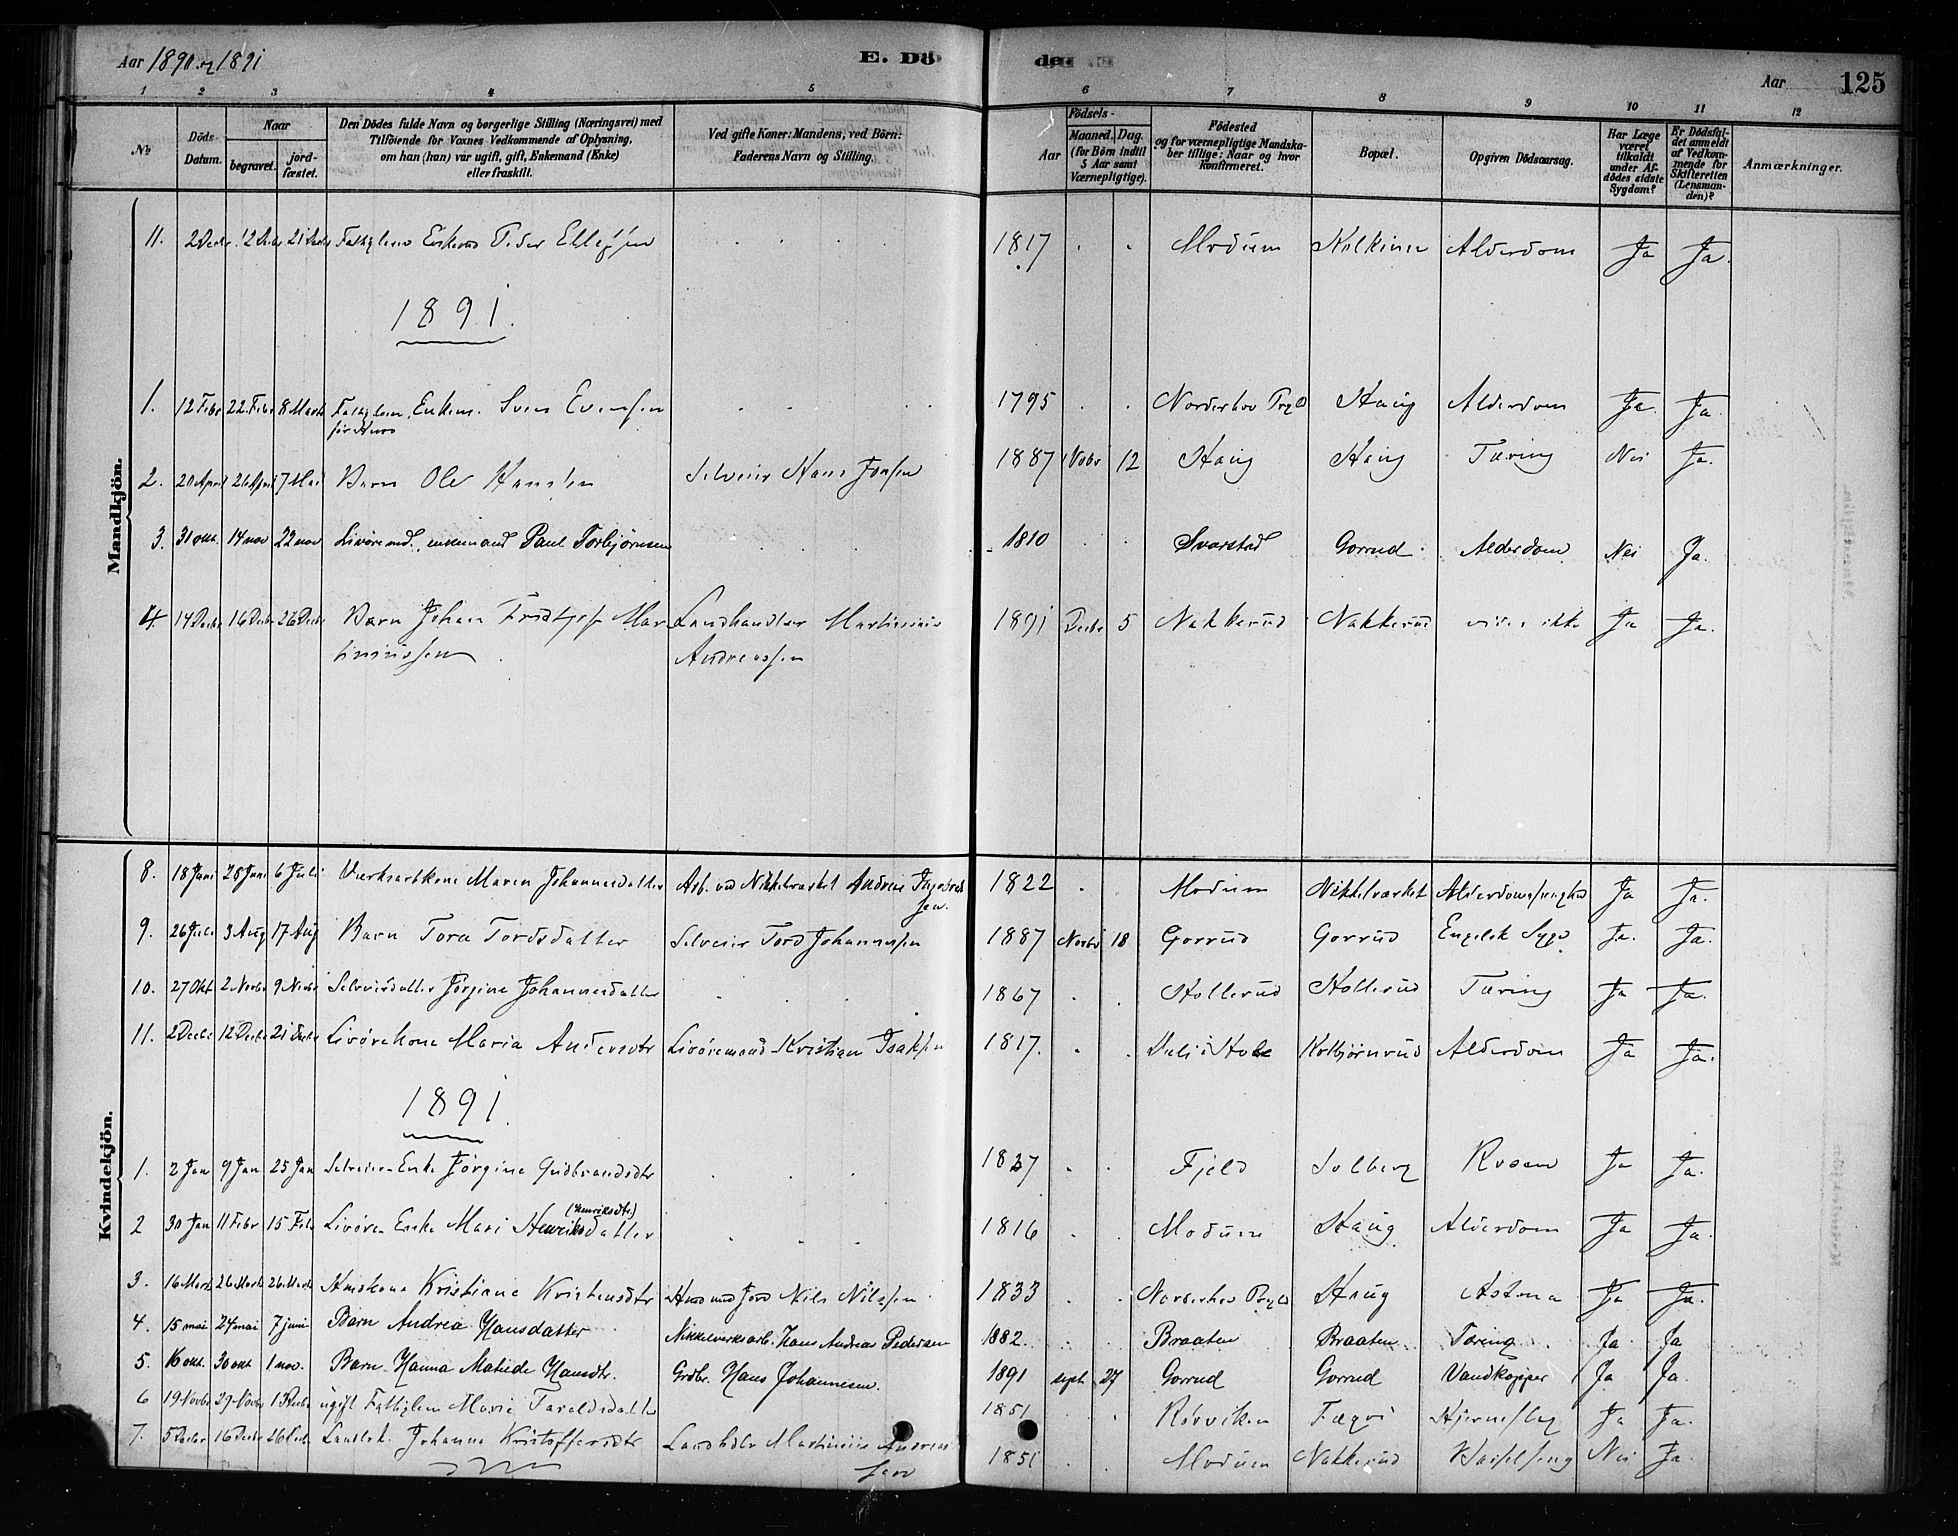 Aar 1890 og 1891
E. Dö
de
Aar
125
1 2 3 4 5 6 7 8 9 10 11 12
No
Döds-Datum.
Naar
begravet.
jord-fæstet.
Den Dödes fulde Navn og borgerlige Stilling (Næringsvei) med
Tilföiende for Voxnes Vedkommende af Oplysning,
om han (hun) var ugift, gift, Enkemand (Enke)
eller fraskilt.
Ved gifte Koner: Mandens, ved Börn:
Faderens Navn og Stilling.
Födsels-
Aar
Maaned. Dag.
(for Börn indtil
5 Aar samt
Værnepligtige).
Födested
og for værnepligtige Mandska-
ber tillige: Naar og hvor
konfirmeret.
Bopæl.
Opgiven Dödsaarsag.
Har Læge
været
tilkaldt
under Af-
dödes sidste
Sygdom?
Er Dödsfal-
det anmeldt
af Vedkom-
mende for
Skifteretten
(Lensman-
den)?
Anmærkninger.
Mandkjön.
11. 2 Decbr 12 Decbr 21 Decbr Fattiglem Enkem Peder Ellefsen 1817 Modum Alderdom Ja Ja.
1891.
1. 12 Febr 22 Febr 8 Marts Fattiglem, Enkem. Sven Evensen 1795 Norderhov Prgld Haug Alderdom Ja. Ja.
før Huus
2. 20 April 26 April 7 Mai Barn Ole Hansen Selveier Hans Jonsen 1887 Novbr 12 Haug Haug Tæring Nei Ja.
3. 31 okt. 14 nov 22 nov Livøremd., enkemand Paul Torbjørnsen 1810 Svarstad Gorrud Alderdom Nei Ja.
4. 14 Decbr 16 Decbr 26 Decbr Barn Johan Fridtjof Mar- Landhandler Martinius 1891 Decbr 5 Nakkerud Nakkerud vides ikke Ja Ja.
tiniussen Andreassen
Kvindekjön.
8. 18 Juni 28 Juni 6 Juli Værksarbkone Maren Johannesdatter Arb. ved Nikkelværket Andreas 1822 Modum Nikkelværket Alderdomssvaghed Ja Ja.
sen.
9. 26 Juli 3 Aug 17 Aug Barn Tora Tordsdatter Selveier Tord Johannessen 1887 Novbr 18 Gorrud Gorrud Engelsk Syge Ja. Ja.
10. 27 Okt 2 Novbr 9 Novbr Selveierdatter Jørgine Johannesdatter 1867 Hollerud Hollerud Tæring Ja Ja.
11. 2 Decbr 12 Decbr 21 Decbr Livørekone Maria Andersdtr Livøremand Kristian Isaksen 1817. i Hole Kolbjørnrud Alderdom Ja Ja.
1891.
1. 2 Jan 9 Jan 25 Jan Selveier-Enke Jørgine Gudbrandsdtr 1827 Fjeld Solberg Rosen Ja Ja.
(Henriksdtr)
2 30 Jan 11 Febr 15 Febr Livøre-Enke Mari Henriksdatter 1816 Modum Haug Alderdom Ja Ja.
3. 16 Marts 26 Marts 26 Marts Huskone Kristiane Kristensdtr Husmd med Jord Nils Nilssen 1833 Norderhov Prgld Haug Astma Ja Ja.
4. 15 mai 24 mai 7 juni Barn Andrea Hansdatter Nikkelverksarb. Hans Andreas Pedersen 1882. Braaten Braaten Tæring Ja Ja
5. 16 okt. 30 okt 1 nov. Barn Hanna Matilde Hansdtr. Grdbr. Hans Johannesen. 1891 sept. 27 Gorrud Gorrud Vandkopper Ja Ja.
6 19 Novbr 29 Novbr 13 Decbr ugift Fattiglem Maria Taraldsdatter 1851 Rørviken Hjerneslag Ja Ja.
7. 5 Decbr 16 Decbr 26 Decbr Landhk. Johanne Kristoffersdtr Landhdlr Martinius Andreas- 1851 Modum Nakkerud Barselseng Nei Ja.
sen